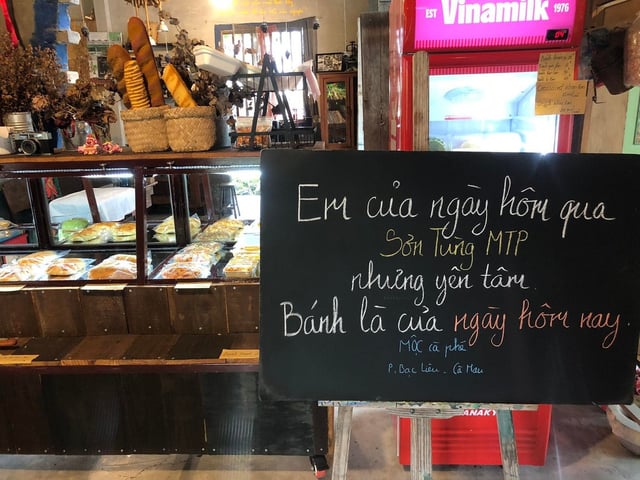 EST Vinamilk 1976
Em của ngày hôm qua
Sơn Tùng MTP
nhưng yên tâm.
Bánh là của ngày hôm nay.
MỘC cà phê
P. Bạc Liêu . Cà Mau